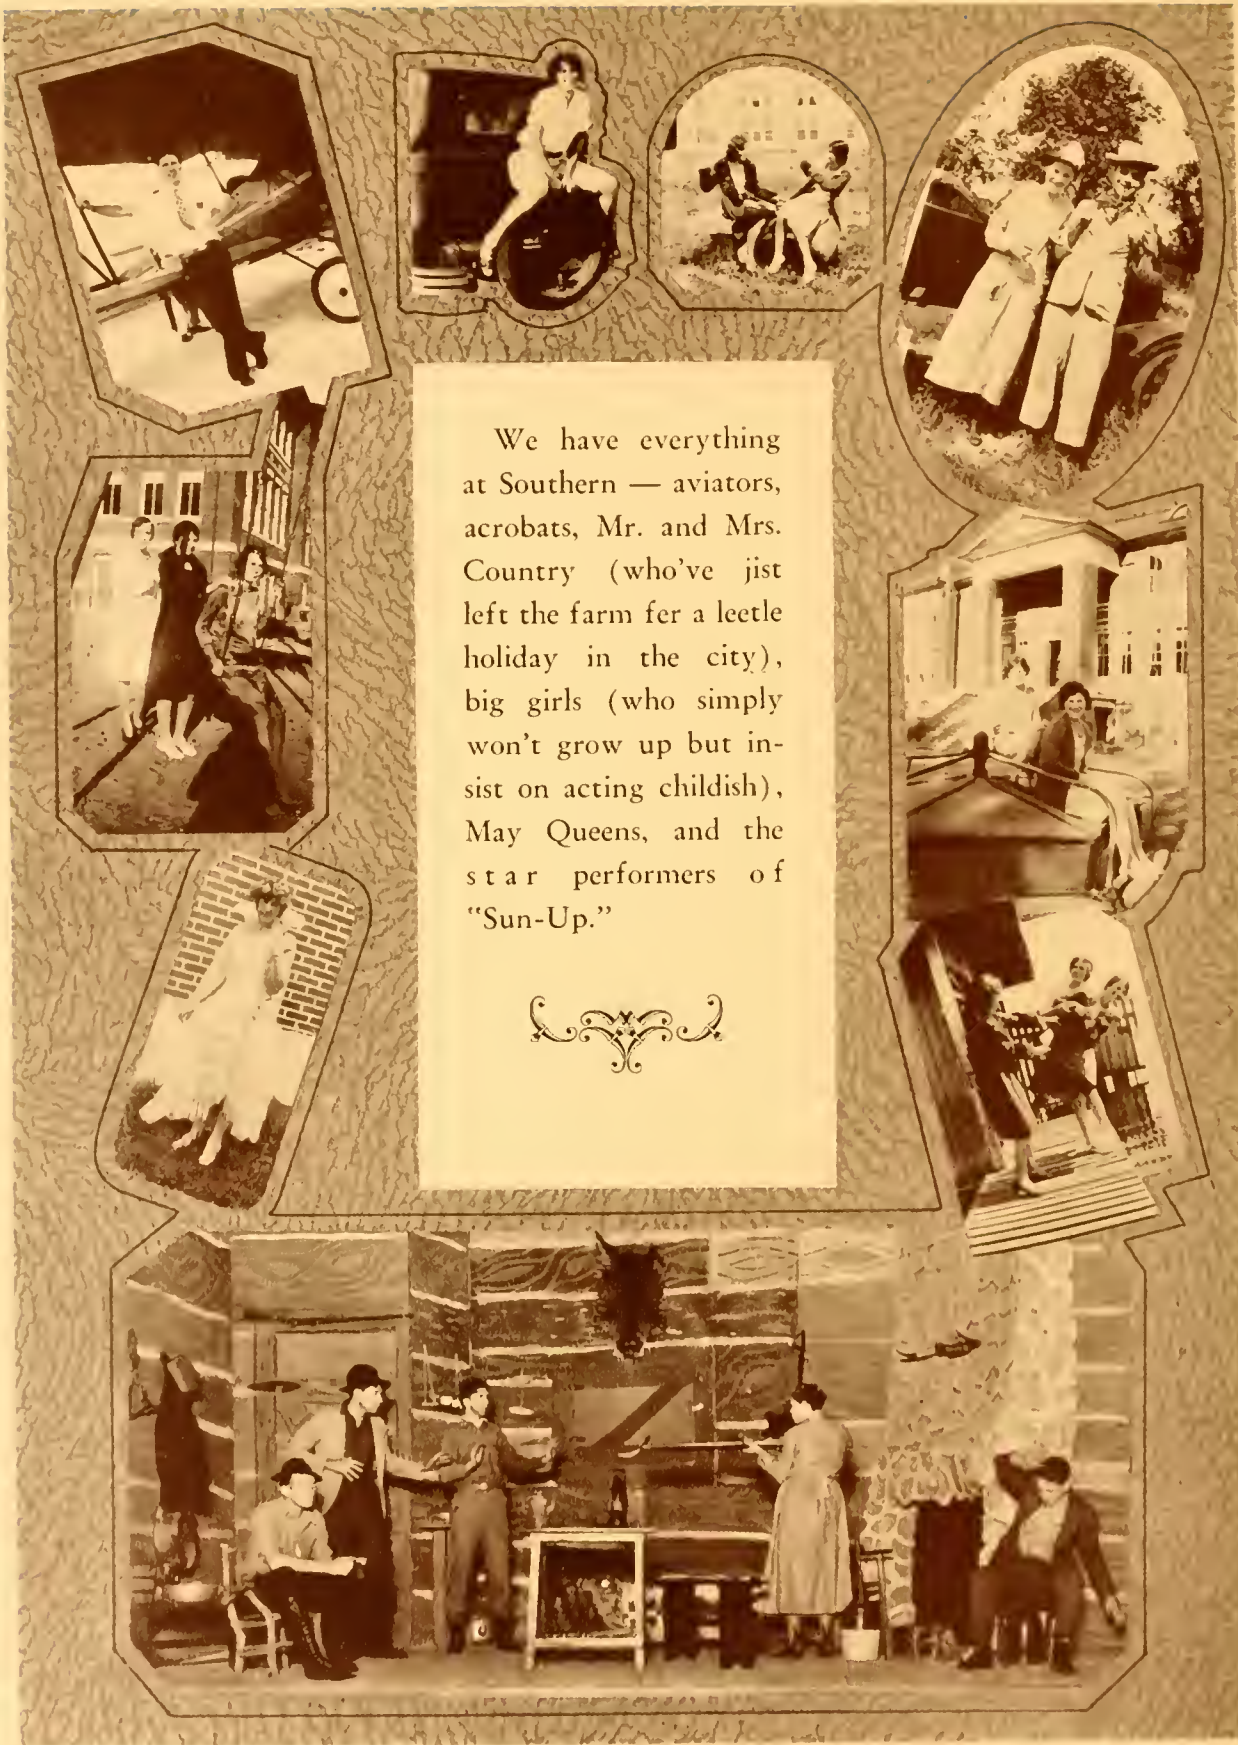 We have everything
at Southern — aviators,
acrobats, Mr. and Mrs.
Country (who've jist
left the farm fer a leetle
holiday in the city),
big girls (who simply
won't grow up but in-
sist on acting childish),
May Queens, and the
star performers of
"Sun-Up."